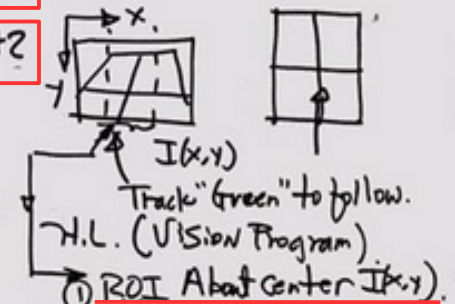 x
?
y
I(x,y)
Track "Green" to follow.
H.L. (Vision Program)
① ROI About Center I(x,y).